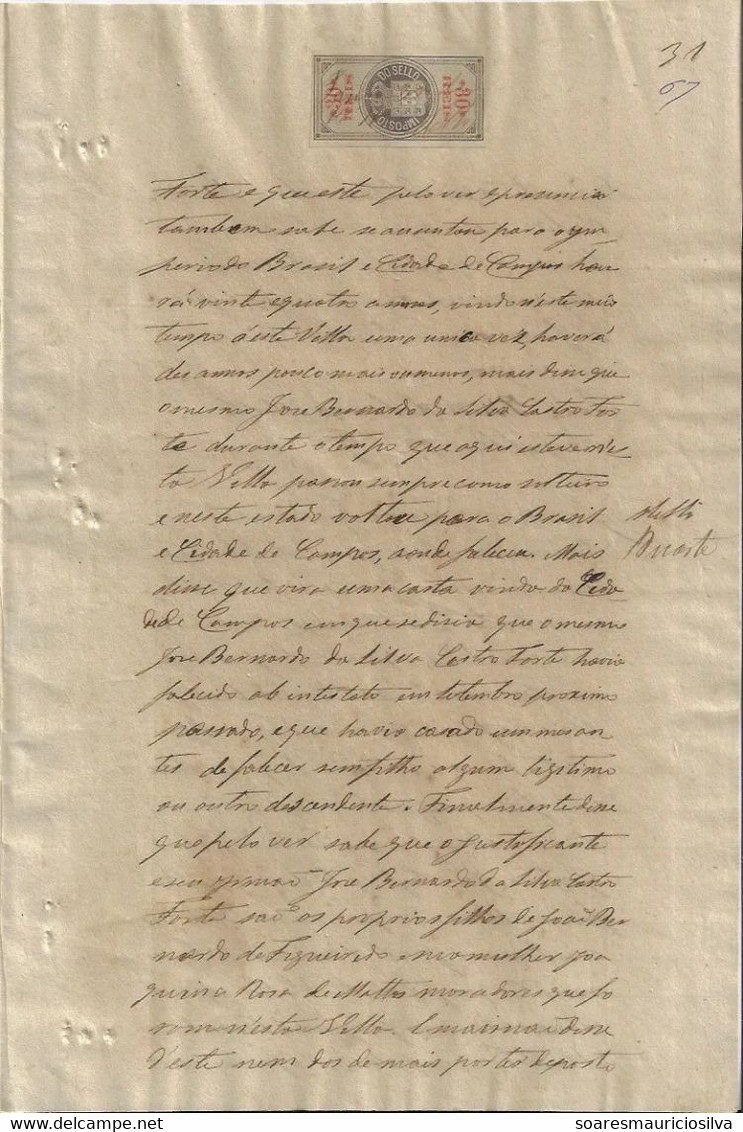 31
67
IMPOSTO DO SELLO
30 REIS
30 REIS
Forte e que este pelo ver e presenciar
tambem sabe se auzentou para o Im
perio do Brasil e Cidade de Campos have
rá vinte e quatro annos, vindo n'este meio
tempo á esta Villa uma unica vez, haverá
des annos pouco mais ou menos, mais disse que
o mesmo Jose Bernardo da Silva Castro For
te durante o tempo que aqui esteve n'es
ta Villa passou sempre como solteiro
e neste estado voltou para o Brasil
e Cidade de Campos, aonde faleceu. Mais
Duarte
disse que vira uma carta vinda da Cida
de de Campos em que se disia que o mesmo
Jose Bernardo da Silva Castro Forte havia
falecido ab intestato em Setembro proximo
passado, e que havia casado um mes an
tes de falecer sem filho algum legitimo
ou outro descendente. Finalmente disse
que pelo ver sabe que o justificante
e seu irmaõ Jose Bernardo da Silva Castro
Forte saõ os proprios filhos de Joaõ Ber
nardo de Figueiredo e sua mulher Joa
quina Rosa de Mattos moradores que fo
ram n'esta Villa. E mais naõ disse
d'este nem dos de mais portes deposto
soaresmauriciosilva